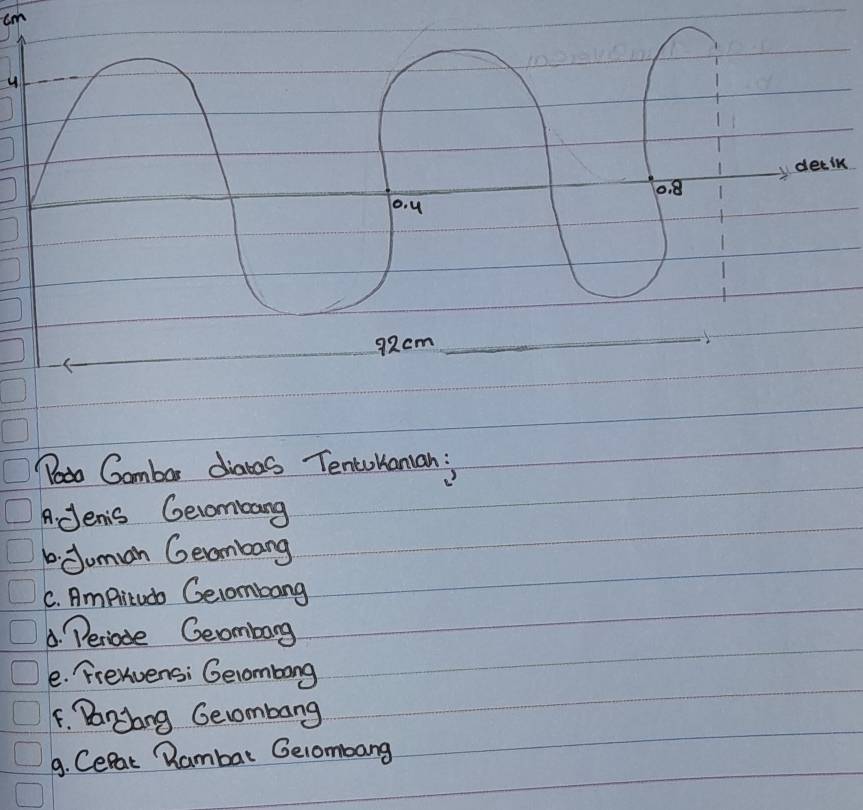 cm
4
detik
0.4
0.8
92cm
Pada Gambar diatas Tentukanlah;
A. Jenis Gelombang
b. Jumlah Gelombang
c. Amplitudo Gelombang
d. Periode Gelombang
e. Frekuensi Gelombang
f. Panjang Gelombang
g. Cepat Rambat Gelombang